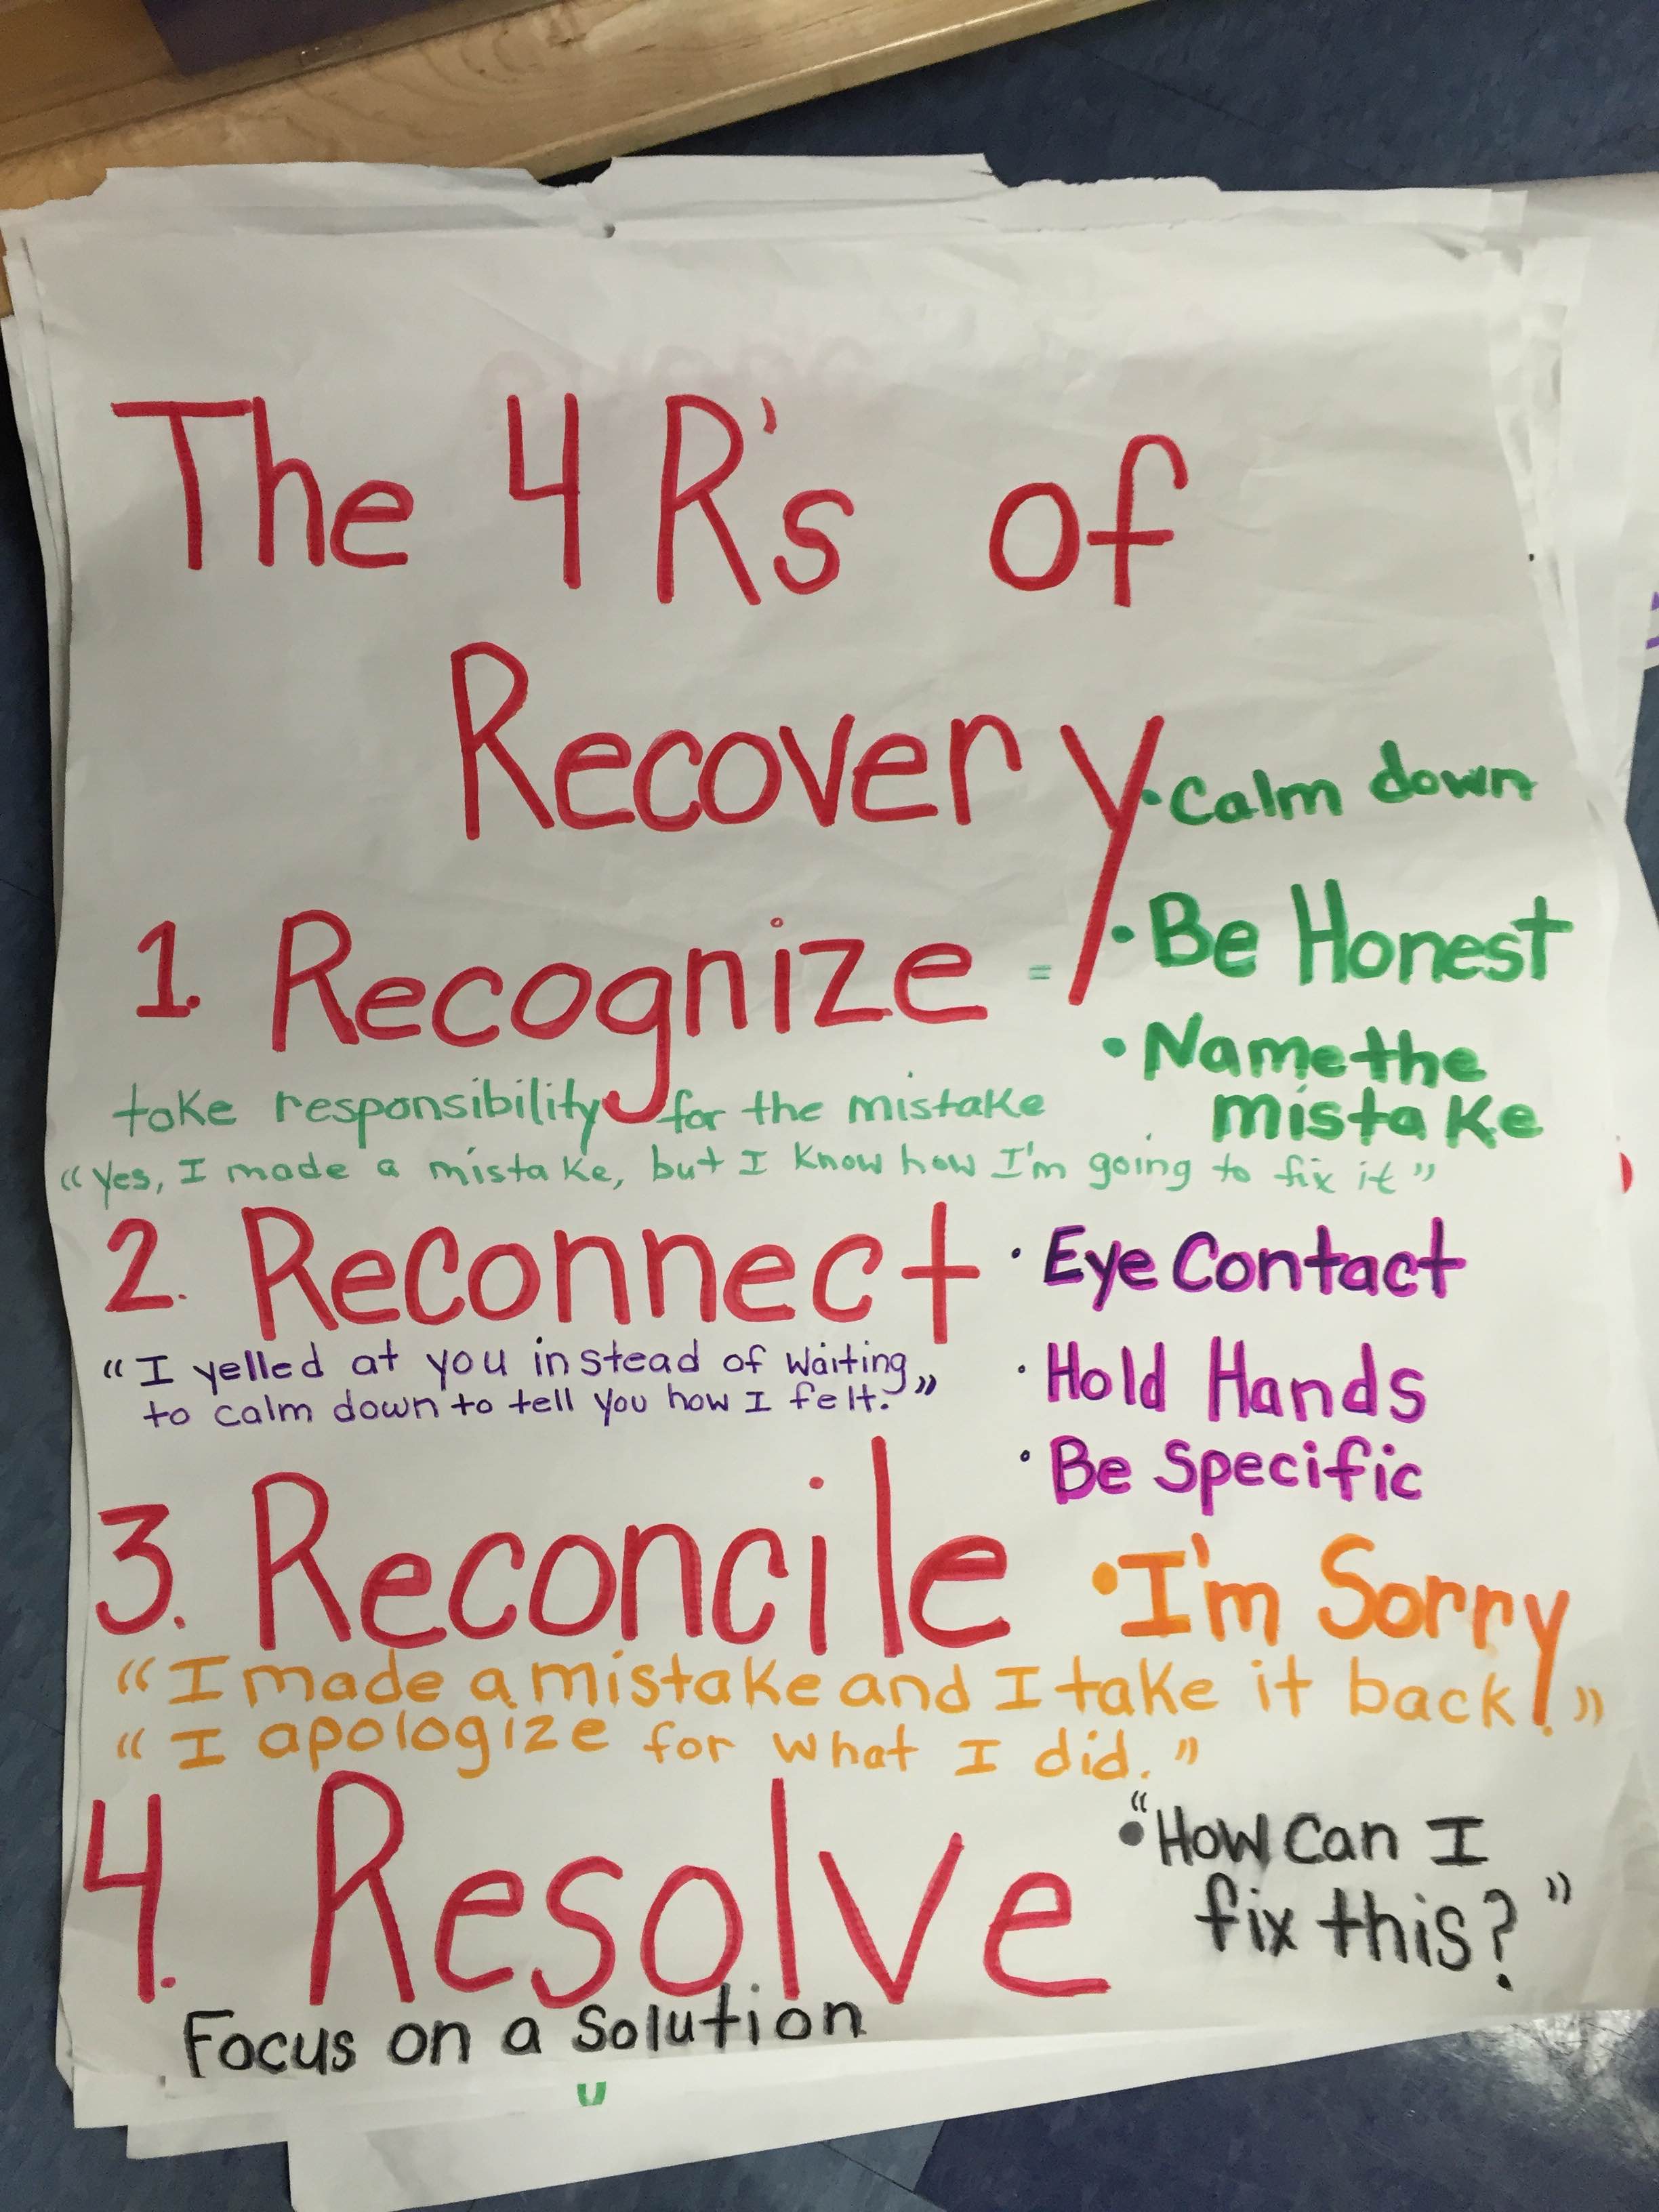 The 4 R's of
Recovery
• Calm down
1. Recognize = • Be Honest
• Name the
mistake
take responsibility for the mistake
"Yes, I made a mistake, but I know how I'm going to fix it"
2. Reconnect • Eye Contact
"I yelled at you instead of waiting
to calm down to tell you how I felt."
• Hold Hands
• Be Specific
3. Reconcile • I'm Sorry
"I made a mistake and I take it back."
"I apologize for what I did."
4. Resolve • "How Can I
fix this?"
Focus on a Solution